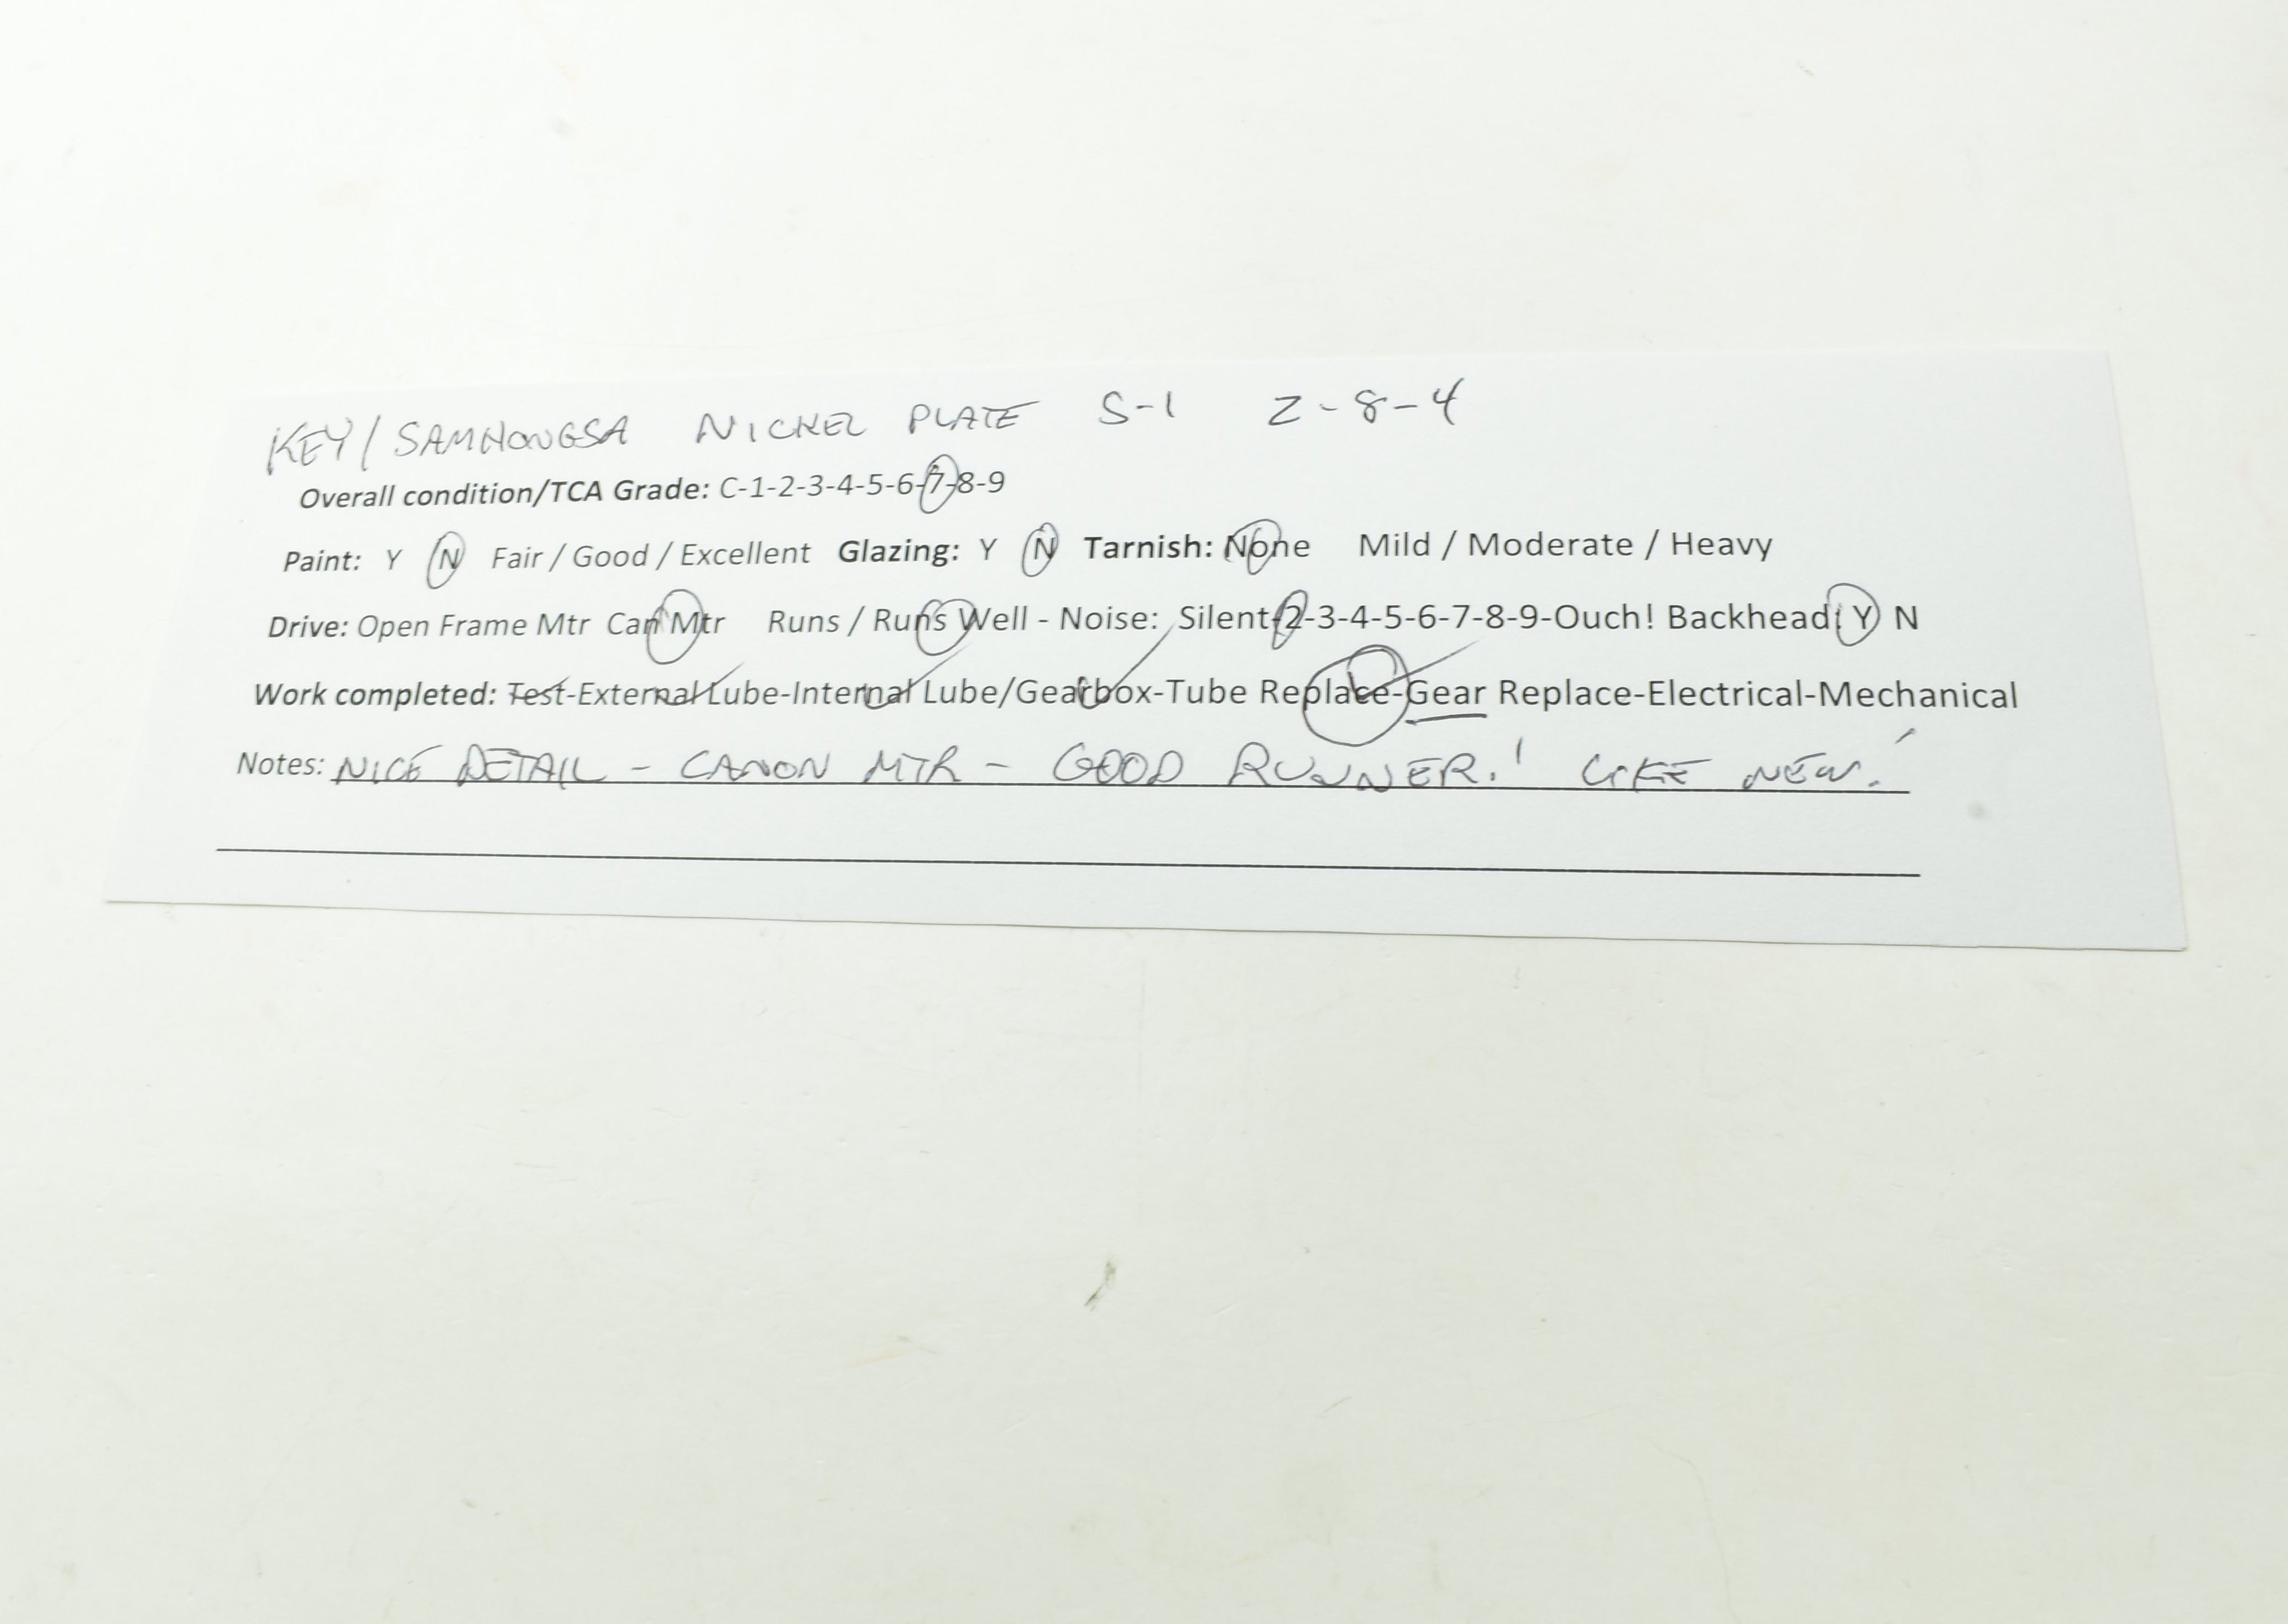 KEY/SAMHONGSA NICKEL PLATE S-1 2-8-4
Overall condition/TCA Grade: C-1-2-3-4-5-6-7-8-9
Paint: Y N Fair / Good / Excellent Glazing: Y N Tarnish: None Mild / Moderate / Heavy
Drive: Open Frame Mtr Can Mtr Runs / Runs Well - Noise: Silent-2-3-4-5-6-7-8-9-Ouch! Backhead: Y N
Work completed: Test-External Lube-Internal Lube/Gearbox-Tube Replace-Gear Replace-Electrical-Mechanical
Notes: NICE DETAIL - CANON MTR - GOOD RUNNER! LIKE NEW!